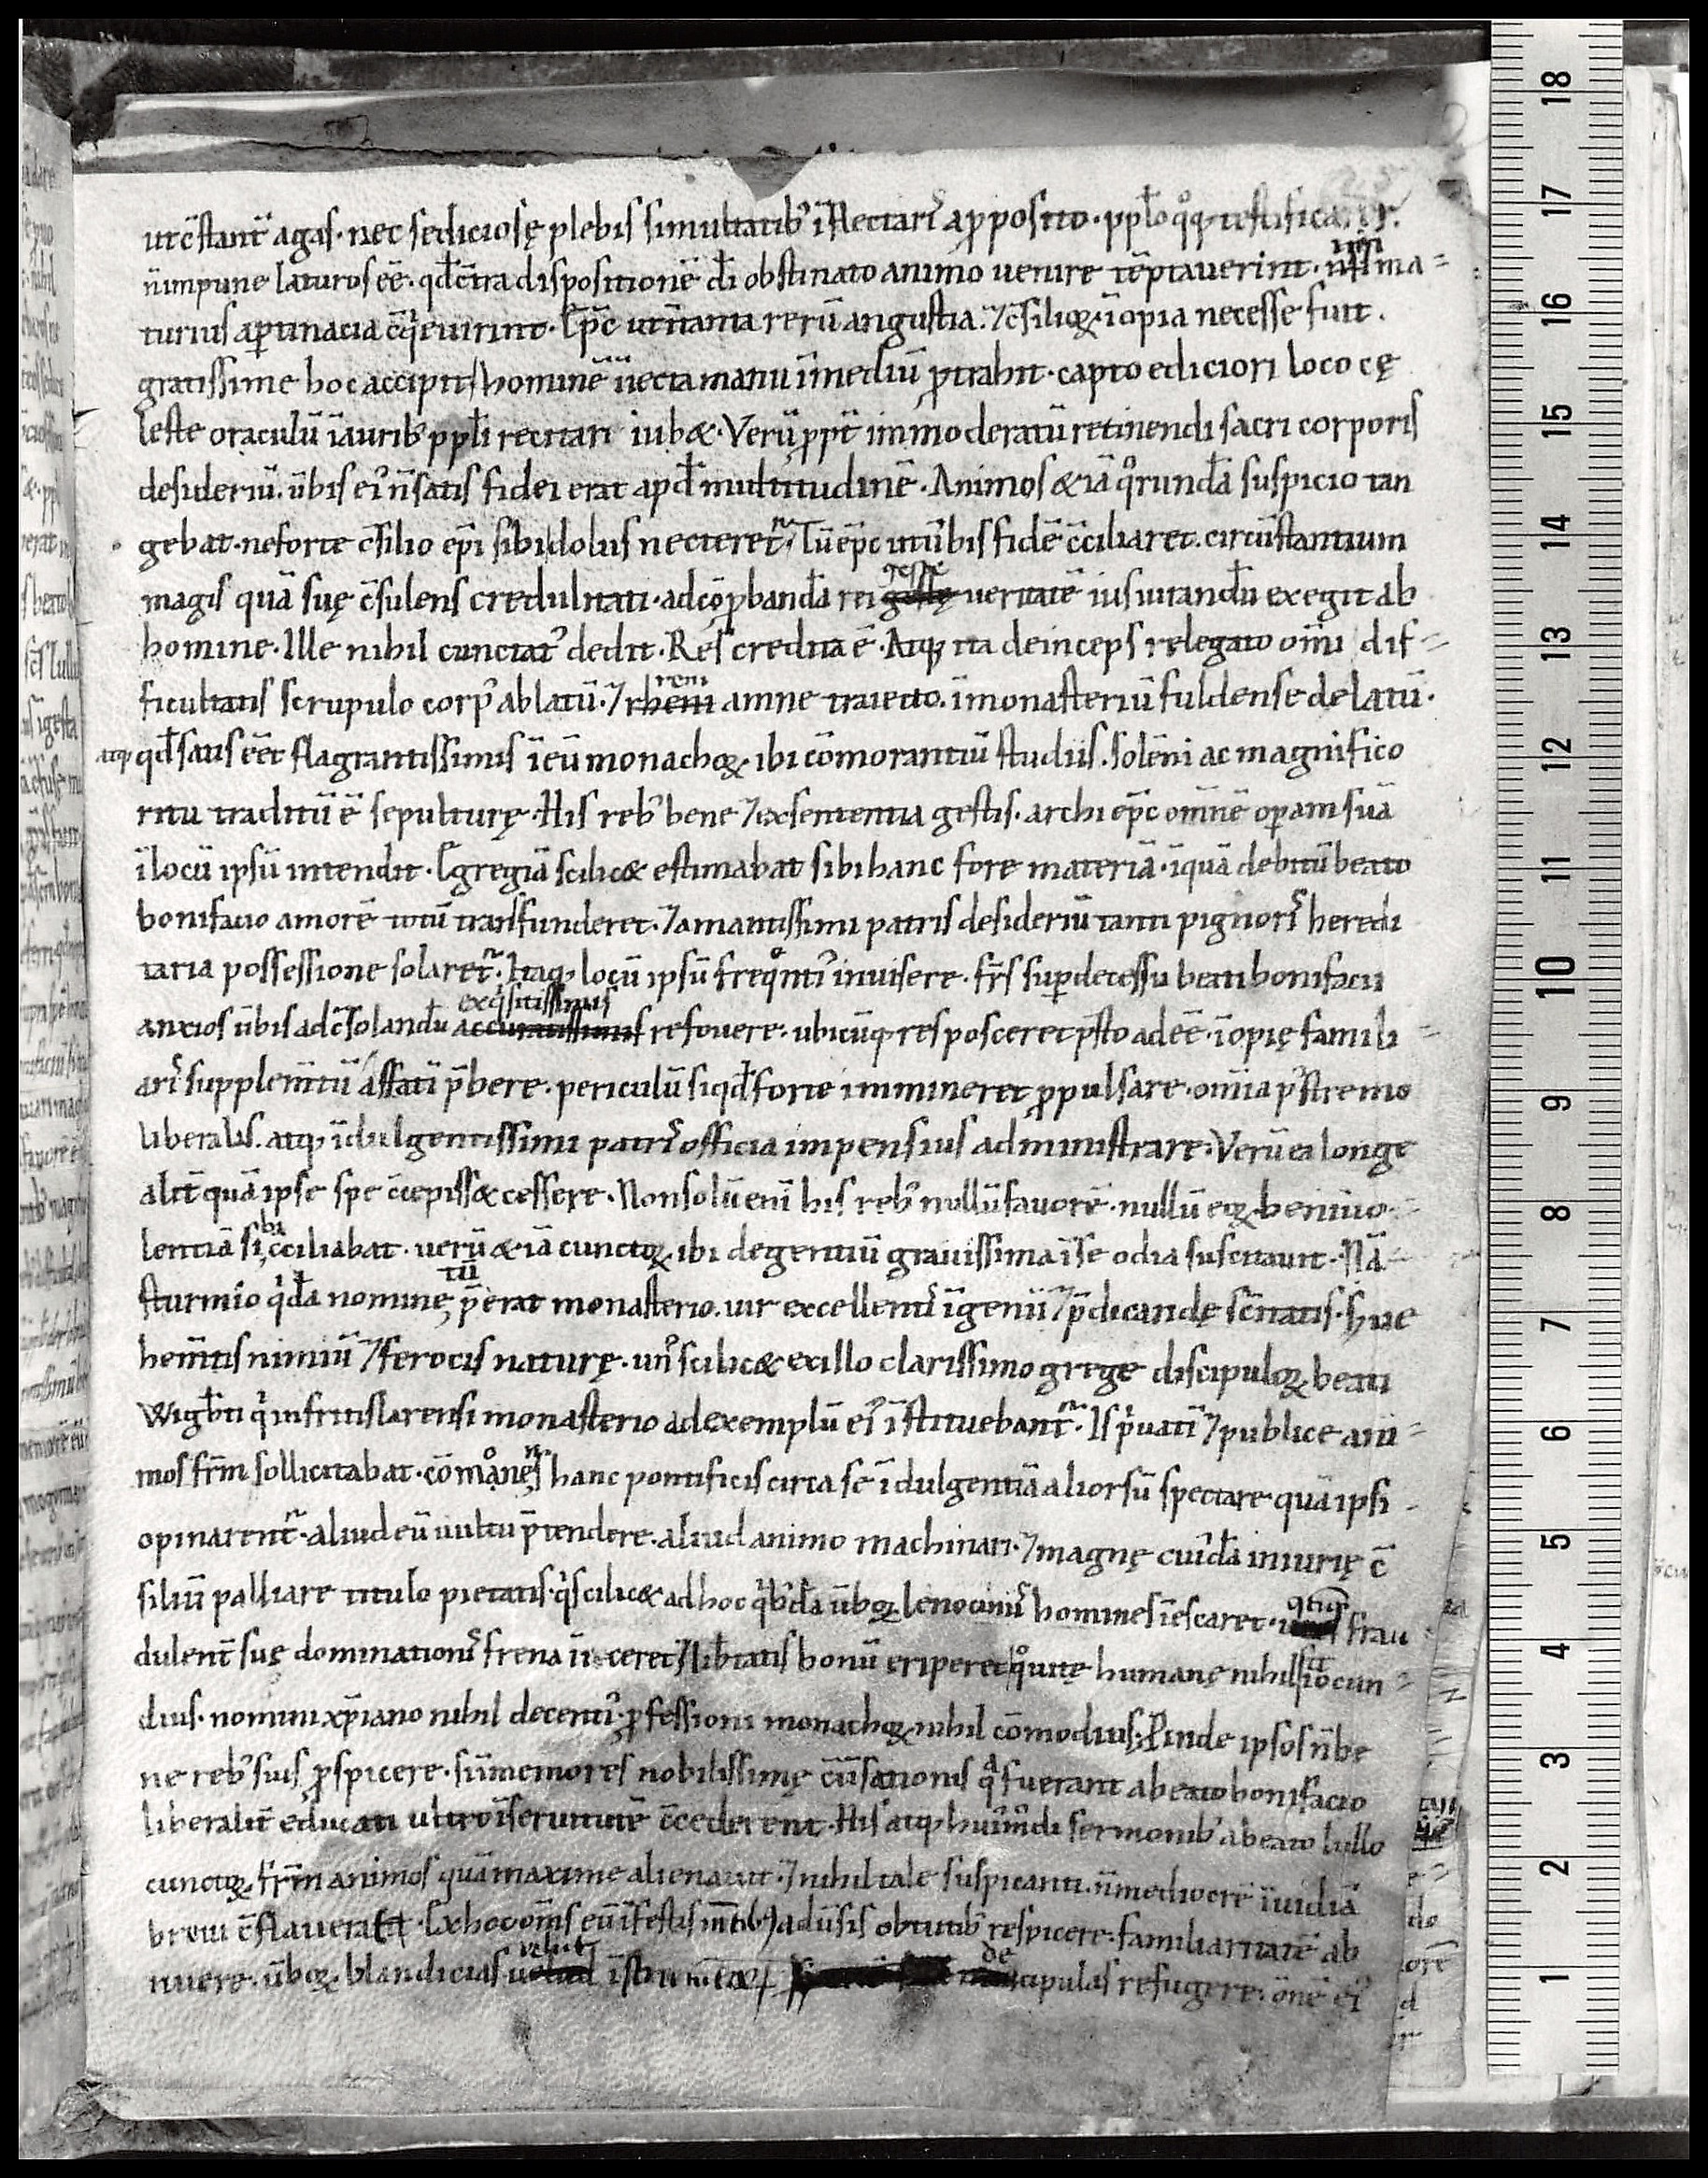 ut c̄stant̄ agas. nec sediciosę plebis simultatib᾿ īflectari᾿ a ꝓposito. pp̄lo qͦꝗ testifica
n̄ impune laturos eē. qd̄ c̄tra dispositionē dī obstinato animo uenire tēptauerint. nisi ma=
turius a ꝑtinacia c̄qͥeuirint. Ep̄c ut ī tanta rerū angustia. ⁊ c̄silioꝝ īopia necesse fuit.
gratissime hoc accipit / hominē īiecta manu ī mediū ꝓtrahit. capto ediciori loco cę
leste oraculū ī aurib᾿ pp̄li recitari iub&. Verū ꝓpt̄ immoderatū retinendi sacri corporis
desideriū. ūbis ei᾿ n̄ satis fidei erat apd̄ multitudinē. Animos &iā qͦrundā suspicio tan
gebat. ne forte c̄silio ep̄i sibi dolus necteret᷑. Tū ep̄c ut ūbis fidē c̄ciliaret. circūstantium
magis quā suę c̄sulens credulitati. ad cōꝓbandā rei gestę ueritatē iusiurandū exegit ab
homine. Ille nihil cunctat᾿ dedit. Res credita ē. Atq; ita deinceps relegato om̄i dif=
ficultatis scrupulo corp᾿ ablatū. ⁊ rheni amne traiecto. ī monasteriū fuldense delatū.
atq; qd̄ satis eēt flagrantissimis ī eū monachoꝝ ibi cōmorantiū studiis. solēni ac magnifico
ritu traditū ē sepulturę. His reb᾿ bene ⁊ ex sententia gestis. archiep̄c om̄nē oꝑam suā
ī locū ipsū intendit. Egregiā scilic& estimabat sibi hanc fore materiā. ī quā debitū beato
bonifacio amorē totū transfunderet. ⁊ amantissimi patris desideriū tanti pignori᾿ heredi
taria possessione solaret᷑. Itaq; locū ipsū freqͦnti᾿ inuisere. fr̄s suꝑ decessu beati bonifacii
exqͥsitissimis
anxios ūbis ad c̄solandū accuratissimis refouere. ubicūq; res posceret p̄sto adeē. īopię famili
ari᾿ supplem̄tū affatī p̄bere. periculū siqd̄ forte immineret ꝓpulsare. om̄ia p᾿stremo
liberalis. atq; īdulgentissimi patri᾿ officia impensius administrare. Verū ea longe
alit̄ quā ipse spe c̄cepiss& cessere. Non solū enī his reb᾿ nullū favorē. nullū eoꝝ beniuo
lentiā sibi c̄ciliabat. uerū &iā cunctoꝝ ibi degentiū grauissima ī se odia suscitauit. Nā
sturmio qͥdā nomine, tū p̄erat monasterio. uir excellenti᾿ īgenii ⁊ p̄dicandę sc̄itatis. S; ue
hem̄tis nimiū ⁊ ferocis naturę. un᾿ scilic& ex illo clarissimo grege discipuloꝝ beati
Wigb̄ti qͥ in fritislarensi monasterio ad exemplū ei᾿ īstituebant᷑. Is p̄uatī ⁊ publice ani=
mos fr̄m sollicitabat. cōmoͦnens hanc pontificis circa se īdulgentiā aliorsū spectare quā ipsi
opinarent᷑. aliud eū uultu p̄tendere. aliud animo machinari. ⁊ magnę cuīdā iniurię c̄
siliū palliare titulo pietatis. qͥ scilic& ad hoc qͥb᾿dā ūboꝝ lenociniis homines īescaret.
dulent̄ suę dominationi᾿ frena iniceret ⁊ lib̄tatis bonū eriperet qͦ uitę humanę nihil sit iocun=
dius. nomini xp̄iano nihil decenti᾿. ꝓfessioni monachoꝝ nihil cōmodius. Proinde ipsos n̄ be
ne reb᾿ suis ꝓspicere. si īmemores nobilissimę c̄ūsationis qͣ fuerant a beato bonifacio
liberalit̄ educati ultro ī seruitutē c̄cederent. His atq; hui᾿modi sermonib᾿ a beato lullo
cunctoꝝ fr̄m animos quā maxime alienauit. ⁊ nihil tale suspicanti. n̄ mediocrē īuidiā
breui c̄flauerat. Ex hoc om̄s eū īfestis m̄tib᾿ ⁊ adūsis obtutib᾿ respicere. familiaritatē ab
nuere. ūboꝝ blandicias uelut